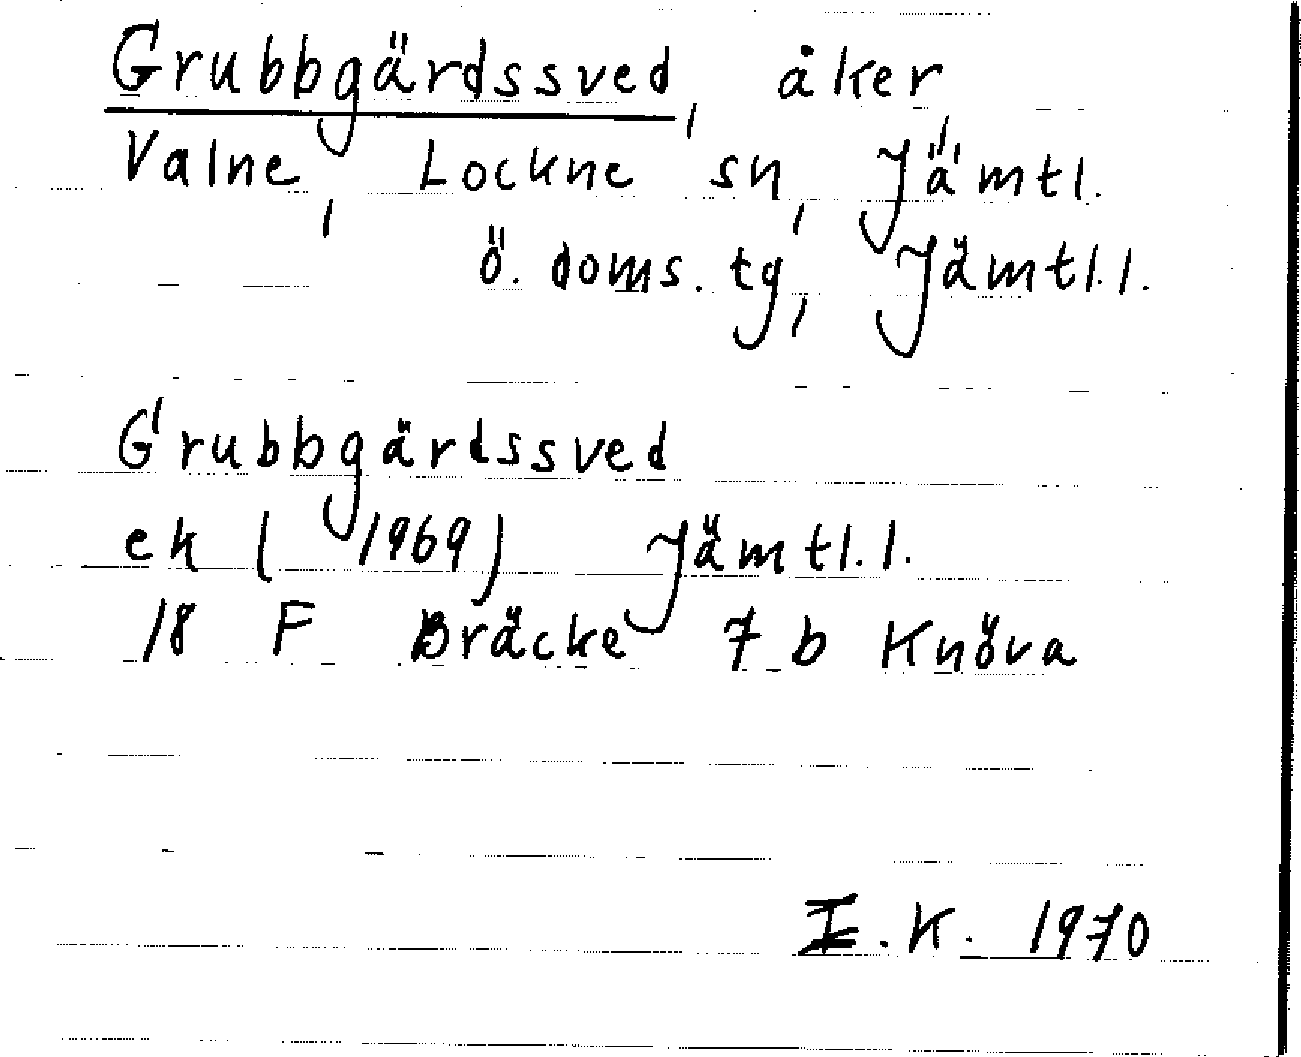 Grubbgärdssved, åker,
Valne, Lockne sn, Jämtl.
ö. doms. tg, Jämtl.l.
Grubbgärdssved
ek (1969) Jämtl.l.
18 F Bräcke 7 b Knöva
I.K. 1970